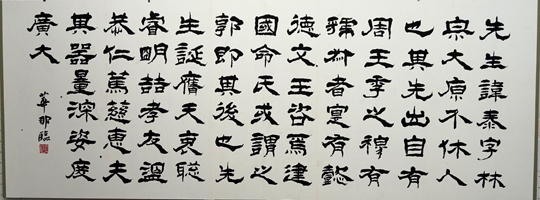 先生諱泰字林
宗大原介休人
也其先出自有
周王季之穆有
虢叔者寔有懿
德文王咨焉建
國命氏或謂之
郭即其後也先
生誕膺天衷聡
睿明喆孝友溫
恭仁篤慈惠夫
其器量深姿度
廣大
華 臨